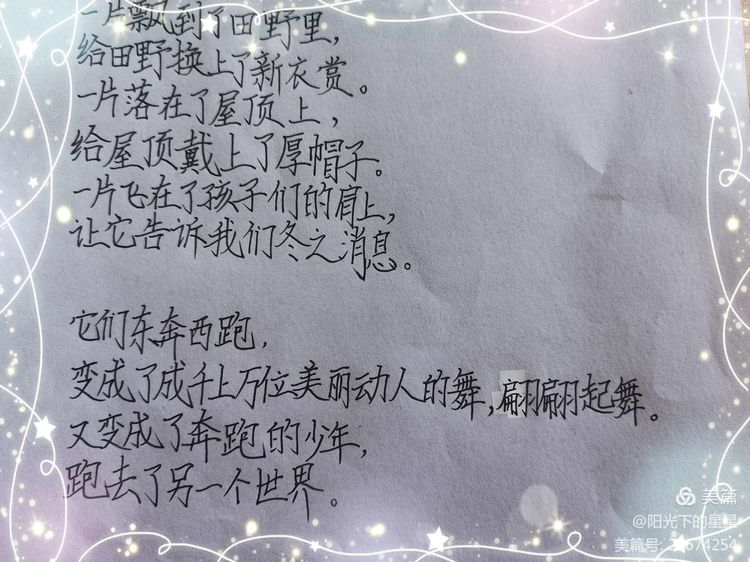 一片飘到了田野里，
给田野换上了新衣赏。
一片落在了屋顶上，
给屋顶戴上了厚帽子。
一片飞在了孩子们的肩上，
让它告诉我们冬之消息。
它们东奔西跑，
变成了成千上万位美丽动人的舞，翩翩起舞。
又变成了奔跑的少年，
跑去了另一个世界。
美篇
@阳光下的星星